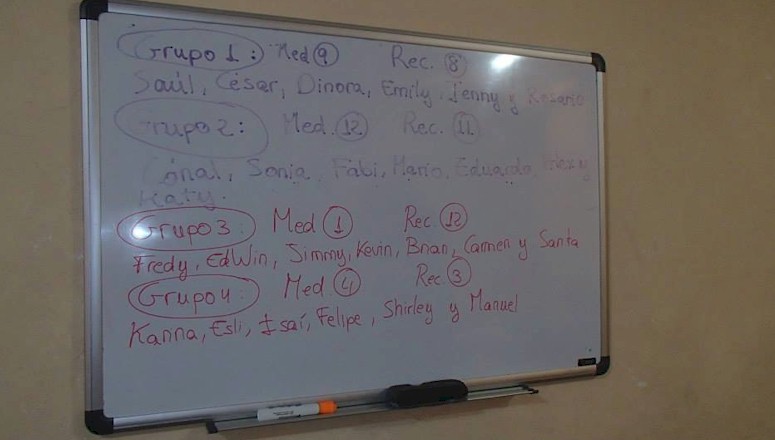 Grupo 1: Med 9 Rec. 8
Saúl, César, Dinora, Emily, Jenny y Rosario
Grupo 2: Med. 12 Rec. 11
Sonia, Fabi, Mario, Eduardo, y
Katy.
Grupo 3: Med 1 Rec. 12
Fredy, EdWin, Jimmy, Kevin, Brian, Carmen y Santa
Grupo 4: Med. 4 Rec. 3
Kanna, Esli, Isaí, Felipe, Shirley y Manuel